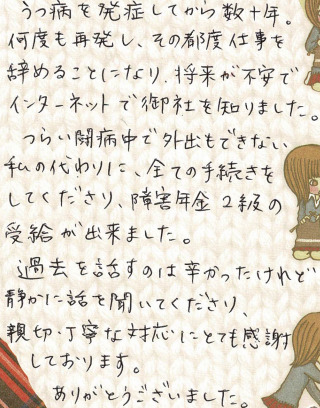 うつ病を発症してから数十年。
何度も再発し、その都度仕事を
辞めることになり、将来が不安で
インターネットで御社を知りました。
つらい闘病中で外出もできない
私の代わりに、全ての手続きを
してくださり、障害年金2級の
受給が出来ました。
過去を話すのは辛かったけれど
静かに話を聞いてくださり、
親切・丁寧な対応にとても感謝
しております。
ありがとうございました。